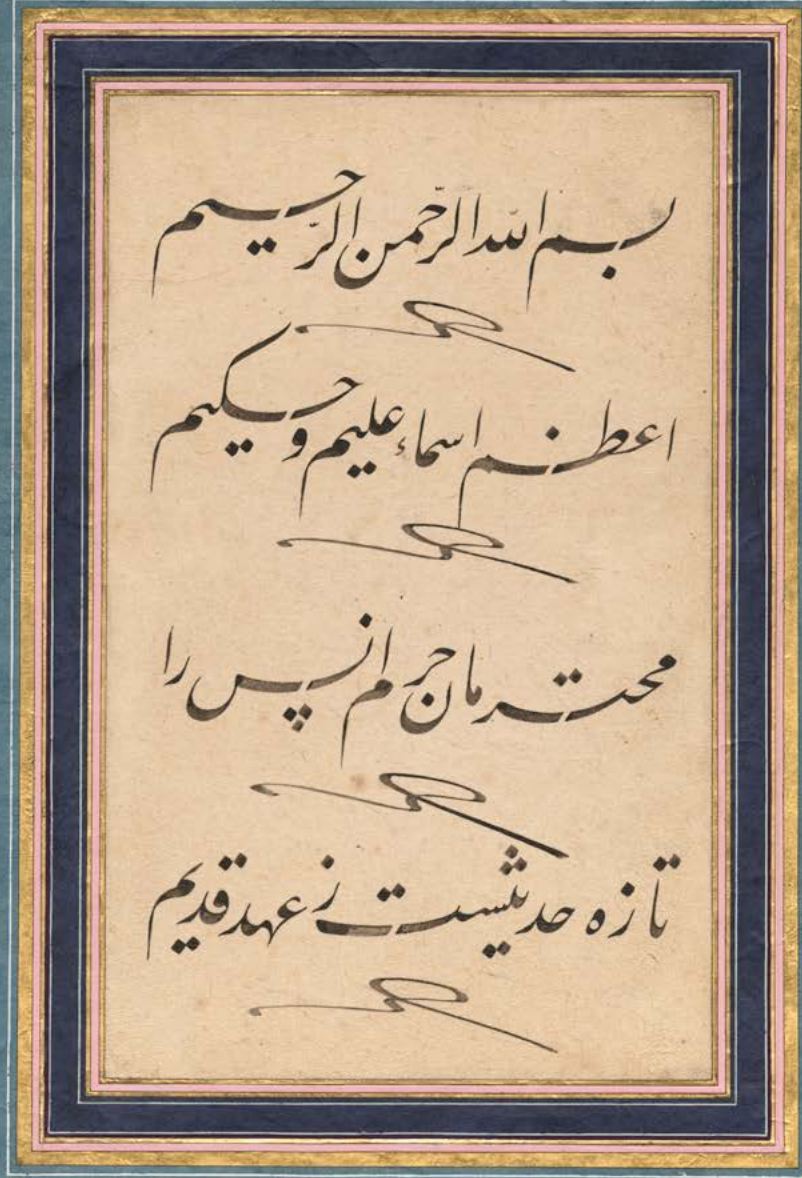 بسم الله الرّحمن الرّحیم
اعظم اسماء علیم و حکیم
محترمان حرم انس را
تازه حدیثست ز عهد قدیم